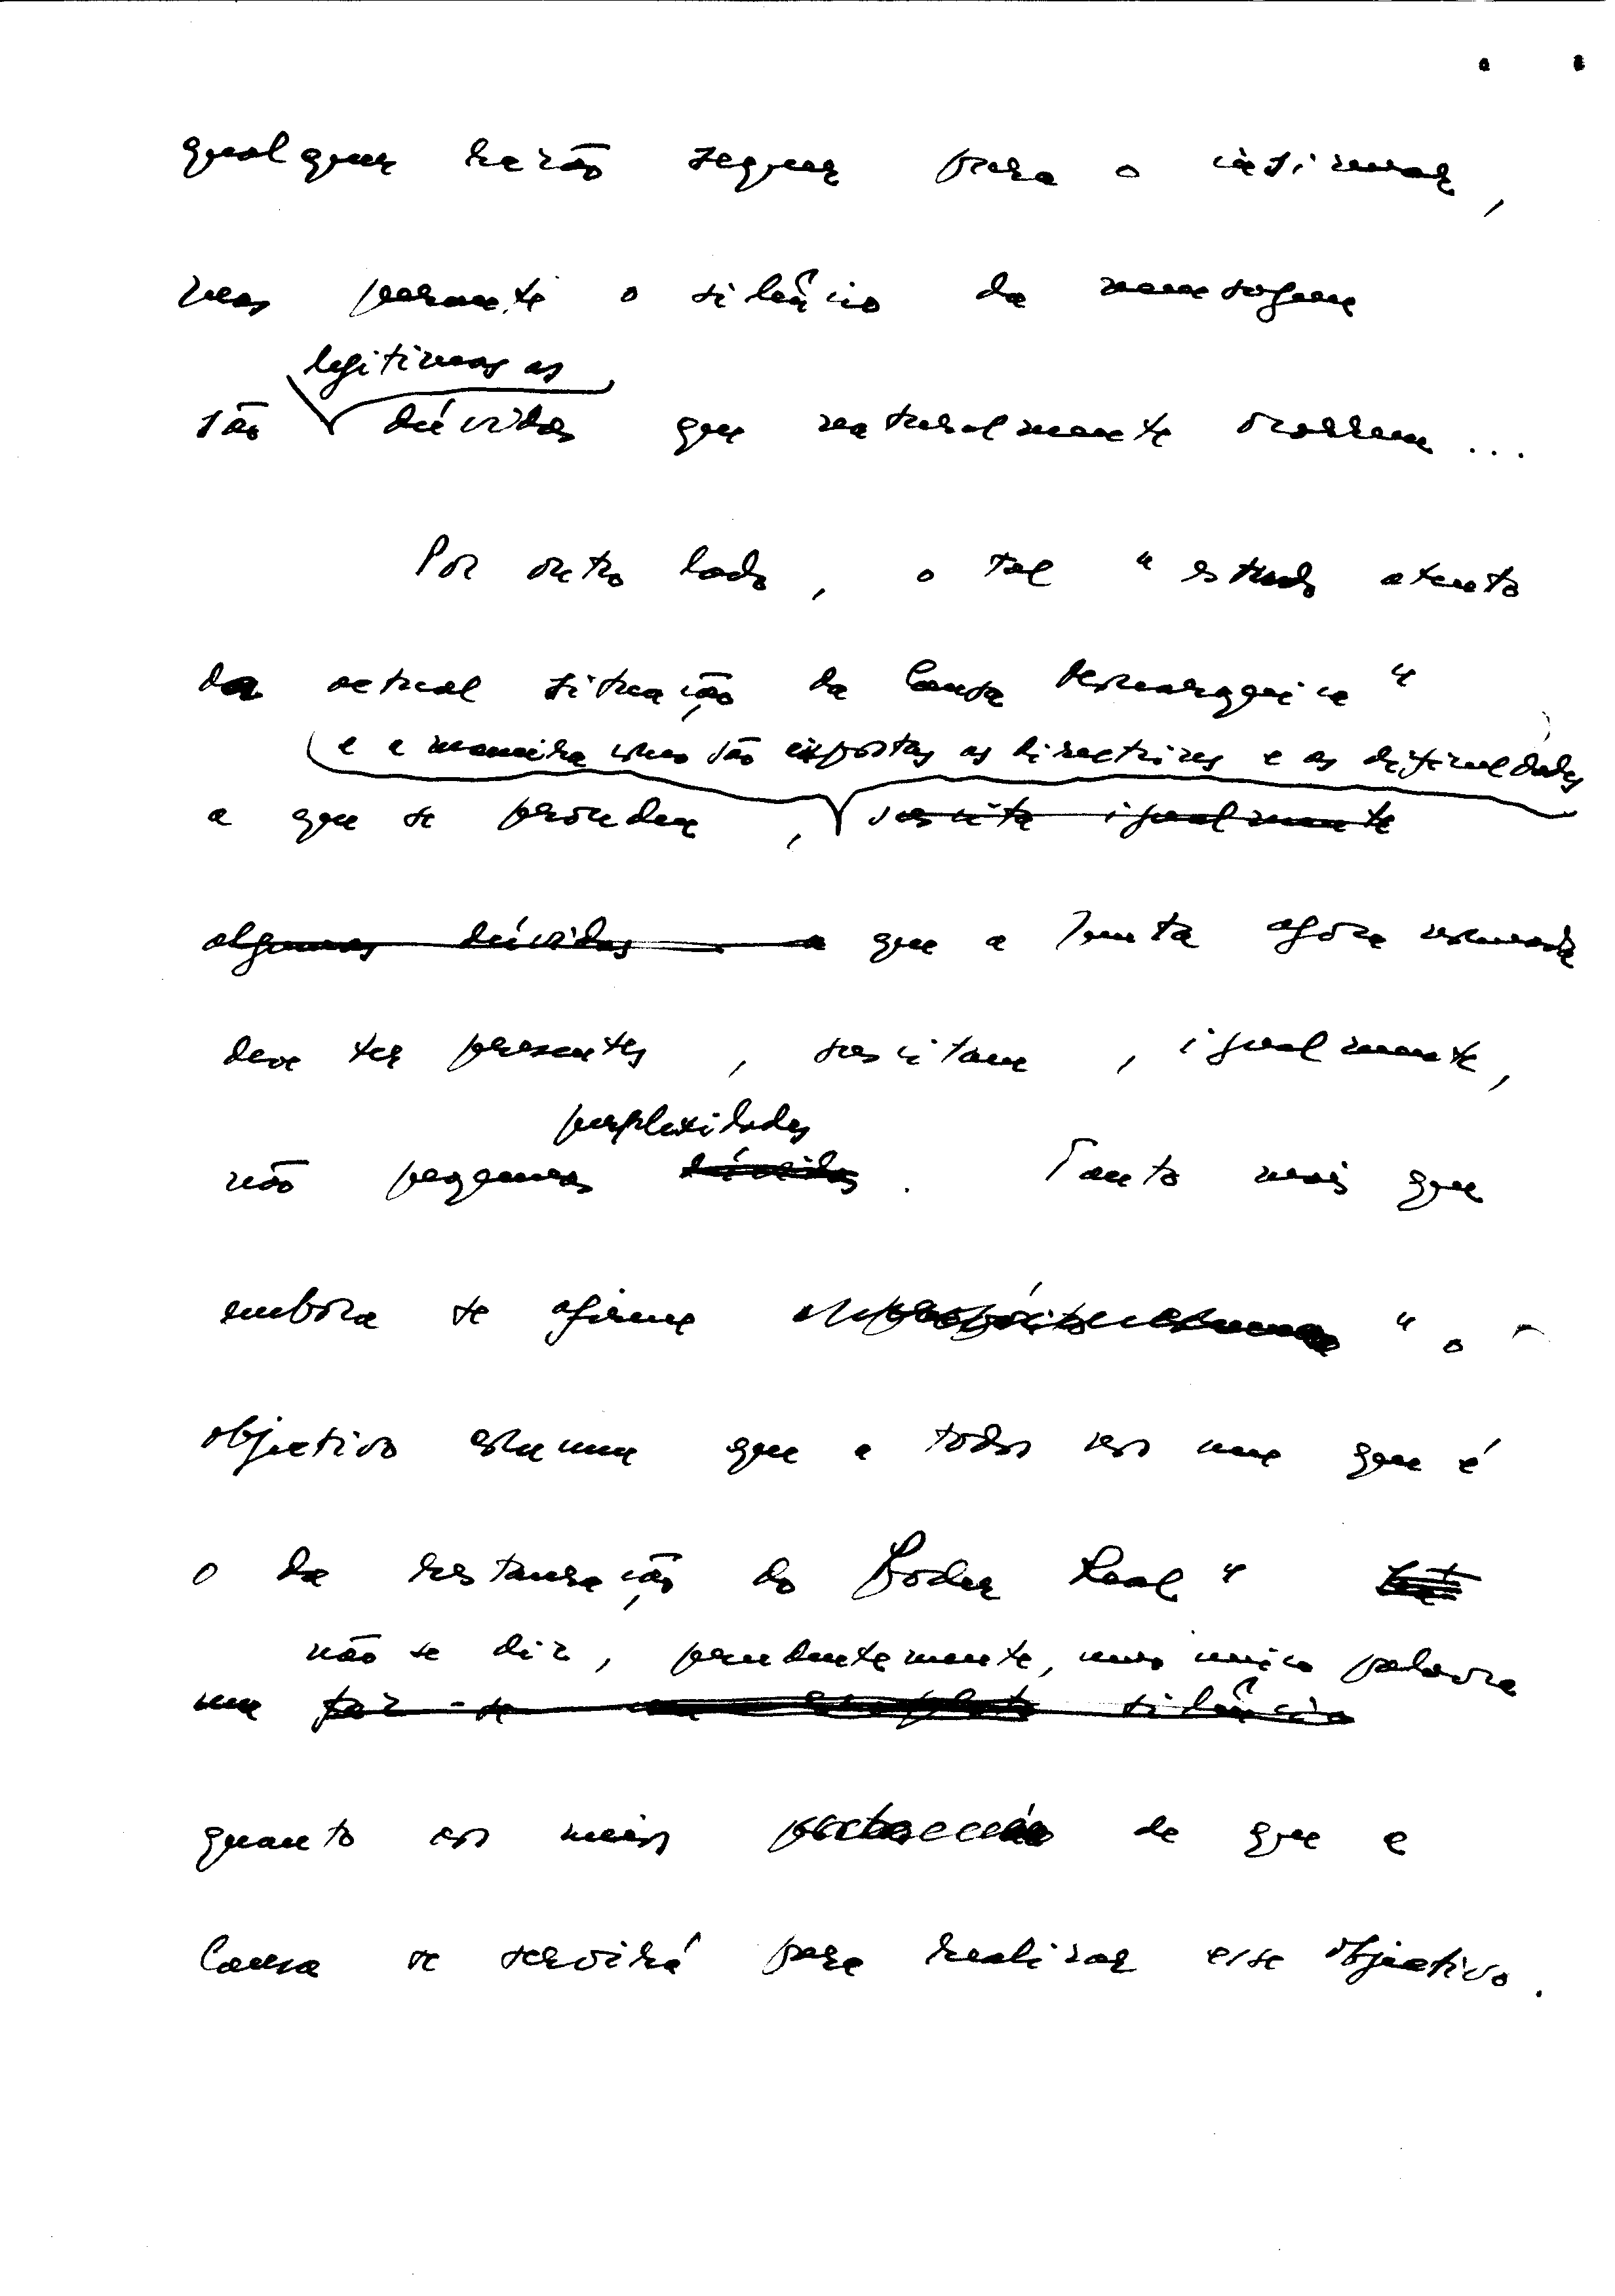 qualquer razão sequer para o insinuar,
mas perante o silêncio da mensagem
legitimas as
são dúvidas que naturalmente ocorrem...
Por outro lado, o tal "estudo atento
da actual situação da Causa Monarquica"
e a maneira como são expostas as directrizes e as dificuldades
a que se procedeu, suscita igualmente
algumas dúvidas a que a Junta agora nomeada
deve ter presentes, suscitam, igualmente,
perplexidades
não pequenas dúvidas. Tanto mais que
embora se afirme "o
objectivo comum que a todos nos une que é
o da restauração do Poder Real"
não se diz, prudentemente, uma unica palavra
nem faz-se um completo silêncio
quanto aos meios de que a
Causa se servirá para realizar esse objectivo.